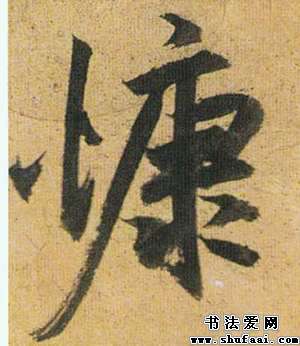 慷
书法爱网
www.shufaai.com